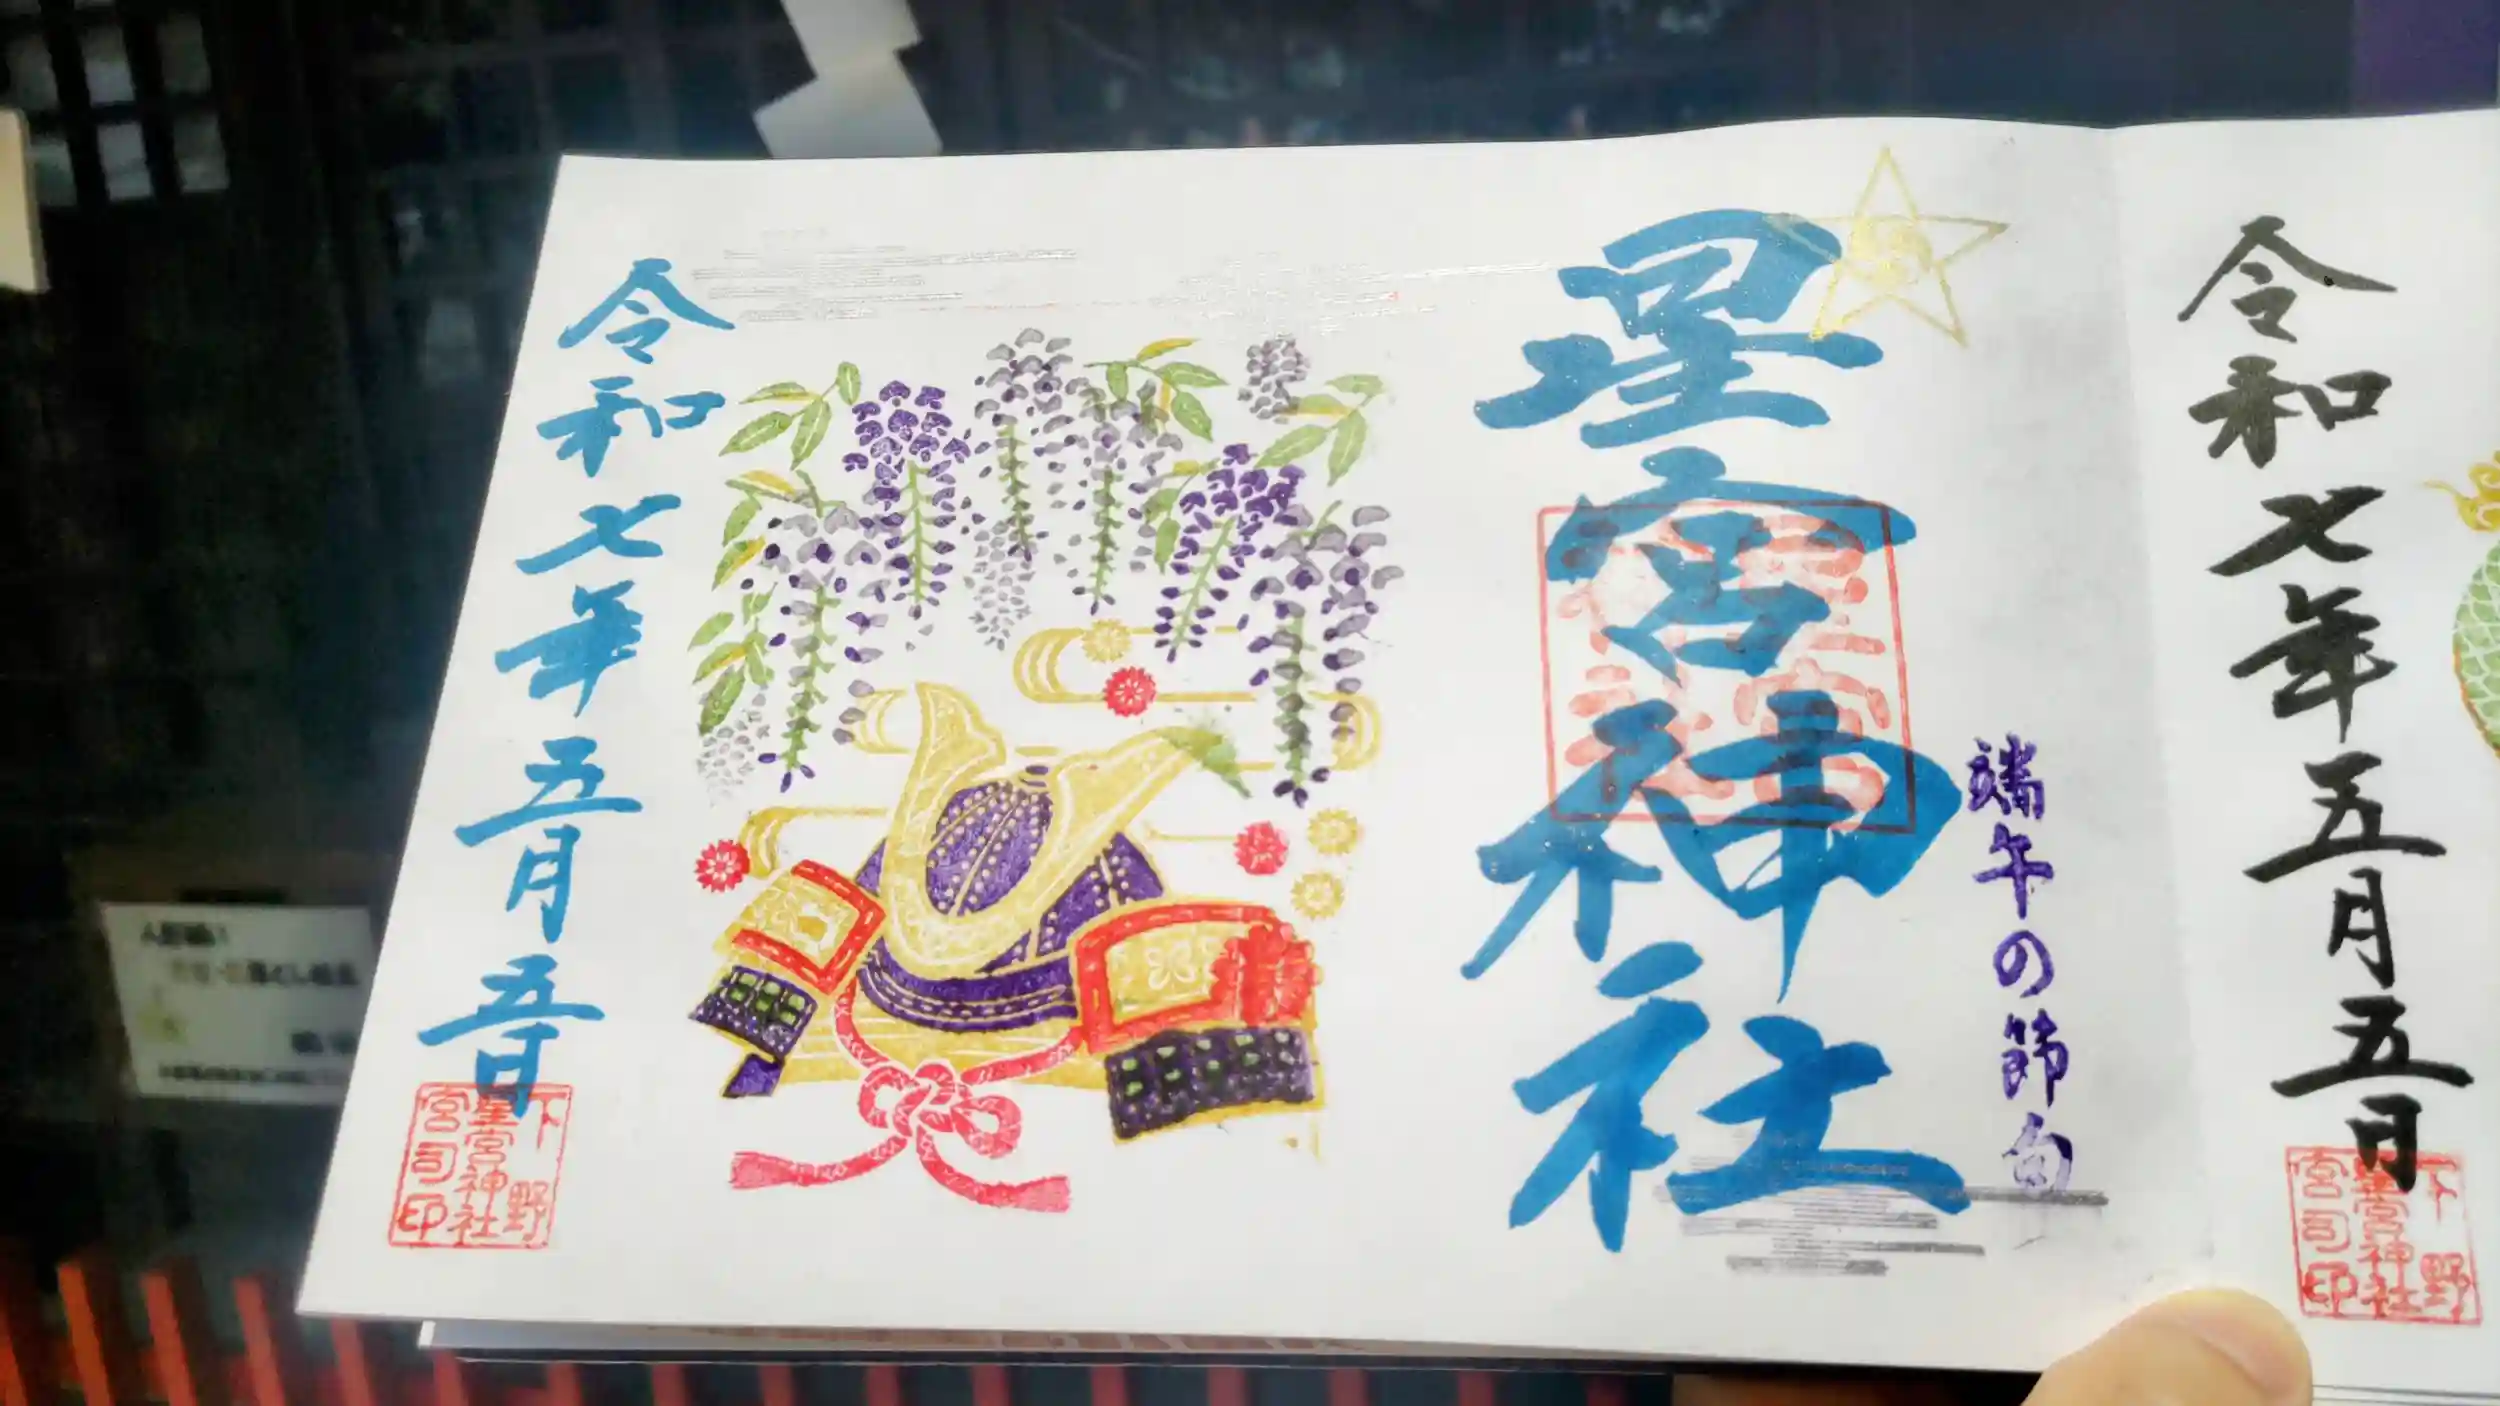 令和七年五月五日
下野
星宮神社
宮司印
端午の節句
星宮神社
令和七年五月五日
下野
星宮神社
宮司印